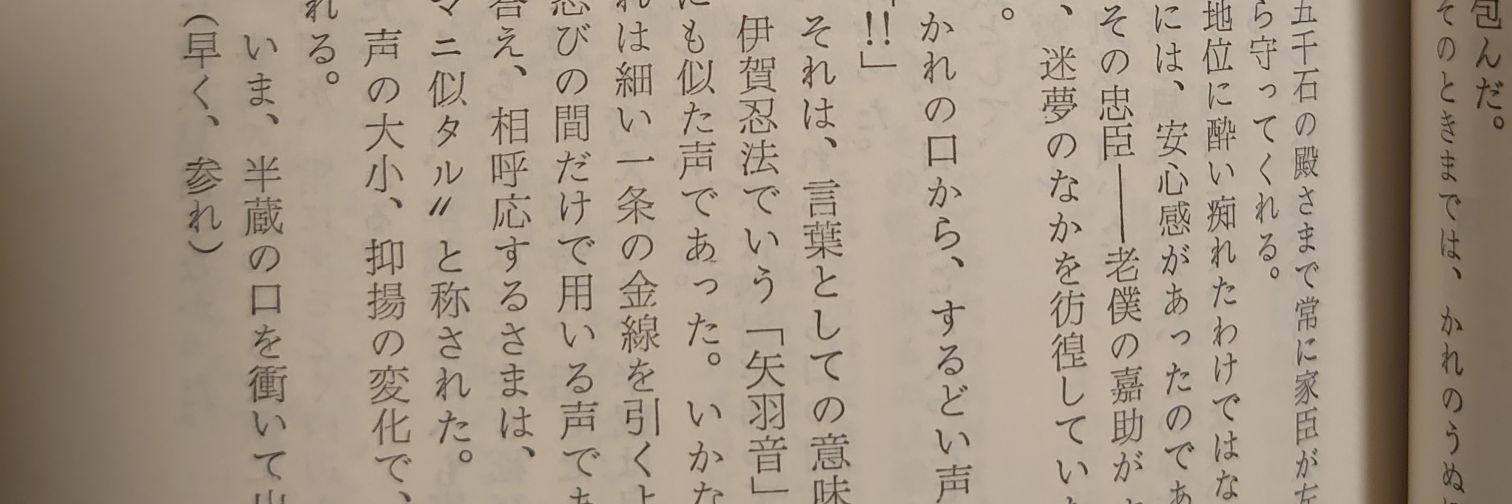 包んだ。
そのときまでは、かれのうぬ
五千石の殿さまで常に家臣が左
ら守ってくれる。
地位に酔い痴れたわけではな
には、安心感があったのであ
その忠臣――老僕の嘉助が
、迷夢のなかを彷徨してい
。
かれの口から、するどい声
!!」
それは、言葉としての意味
伊賀忍法でいう「矢羽音」
にも似た声であった。いかな
れは細い一条の金線を引くよ
忍びの間だけで用いる声であ
答え、相呼応するさまは、
マニ似タル〃と称された。
声の大小、抑揚の変化で、
れる。
いま、半蔵の口を衝いて出
（早く、参れ）